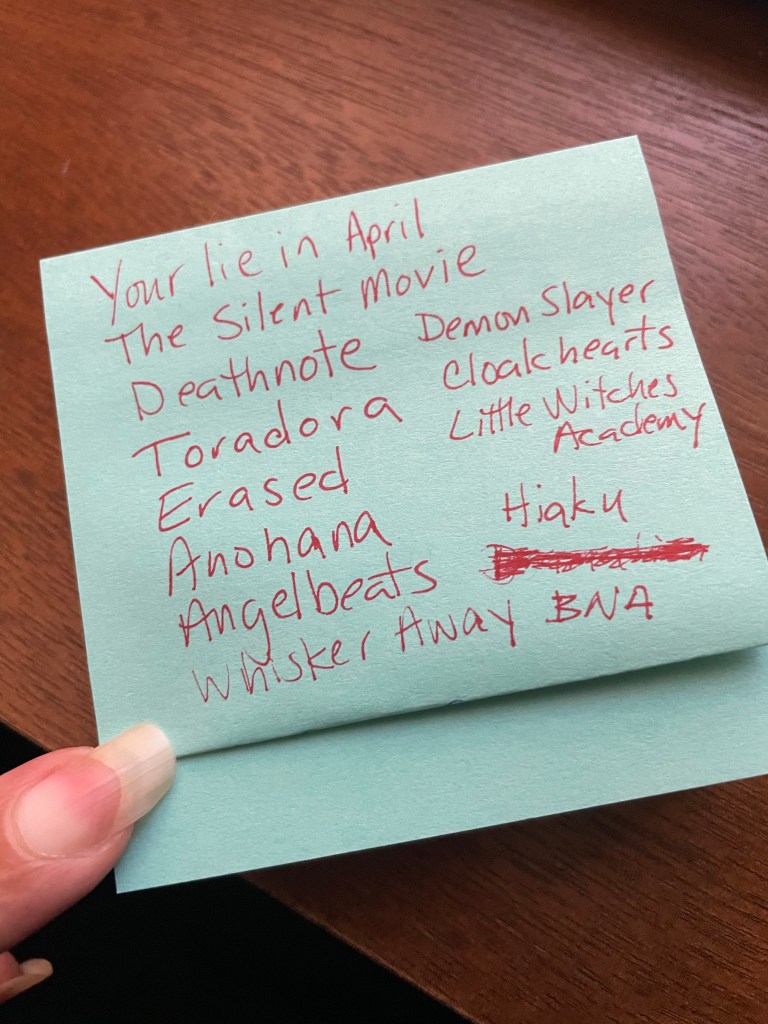 Your lie in April
The Silent Movie
Deathnote
Toradora
Erased
Anohana
Angelbeats
Whisker Away
Demon Slayer
Cloak hearts
Little Witches
Academy
Hiaku
BNA